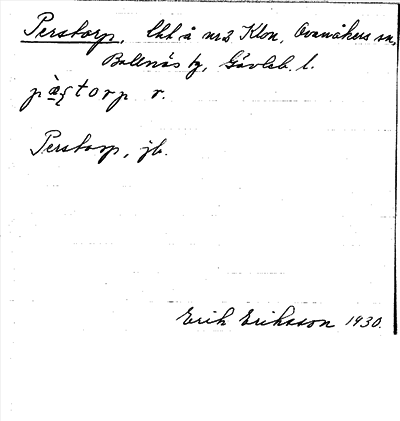 Perstorp, lht å nr 2 Klon, Ovanåkers sn,
Bollnäs tg, Gävleb. l.
pà̱ʂtorp r.
Perstorp, jb.
Erik Eriksson 1930.